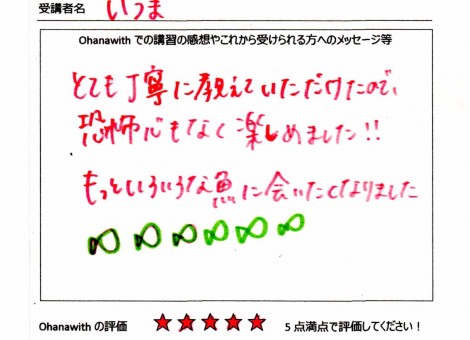 受講者名 いつま
Ohanawith での講習の感想やこれから受けられる方へのメッセージ等
とても丁寧に教えていただけたので、
恐怖心もなく楽しめました!!
もっといういうな魚に会いたくなりました
Ohanawith の評価 ★★★★★ 5点満点で評価してください!